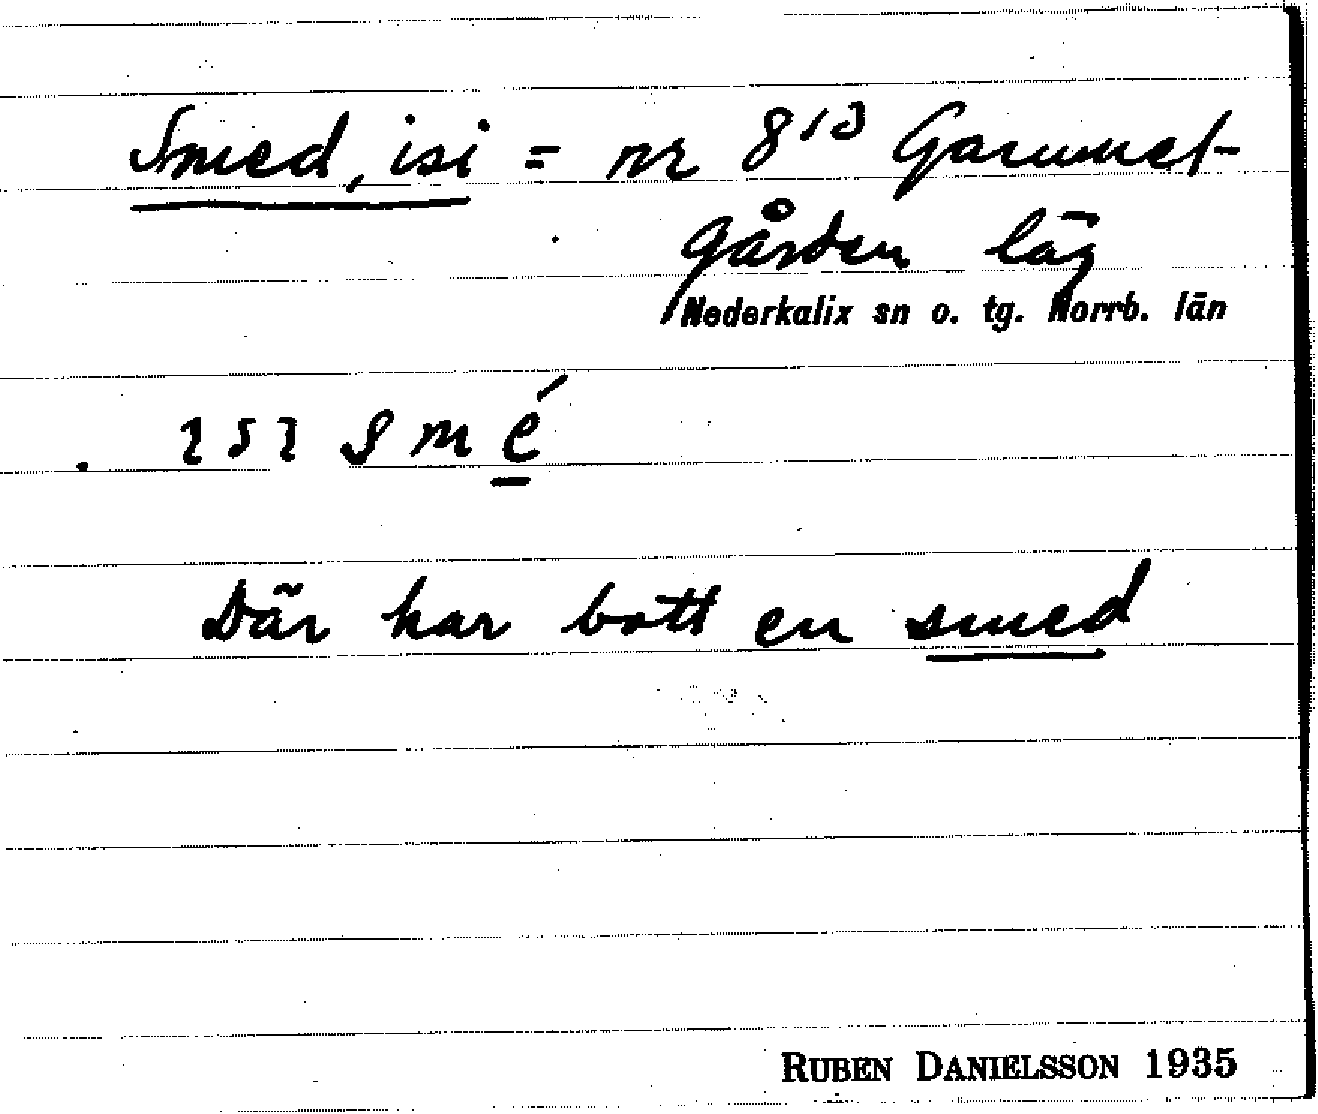 Smed, isi = nr 8¹³ Gammel-
gården läg
Nederkalix sn o. tg. Norrb. län
ɿsɿ smé
Där har bott en smed
RUBEN DANIELSSON 1935